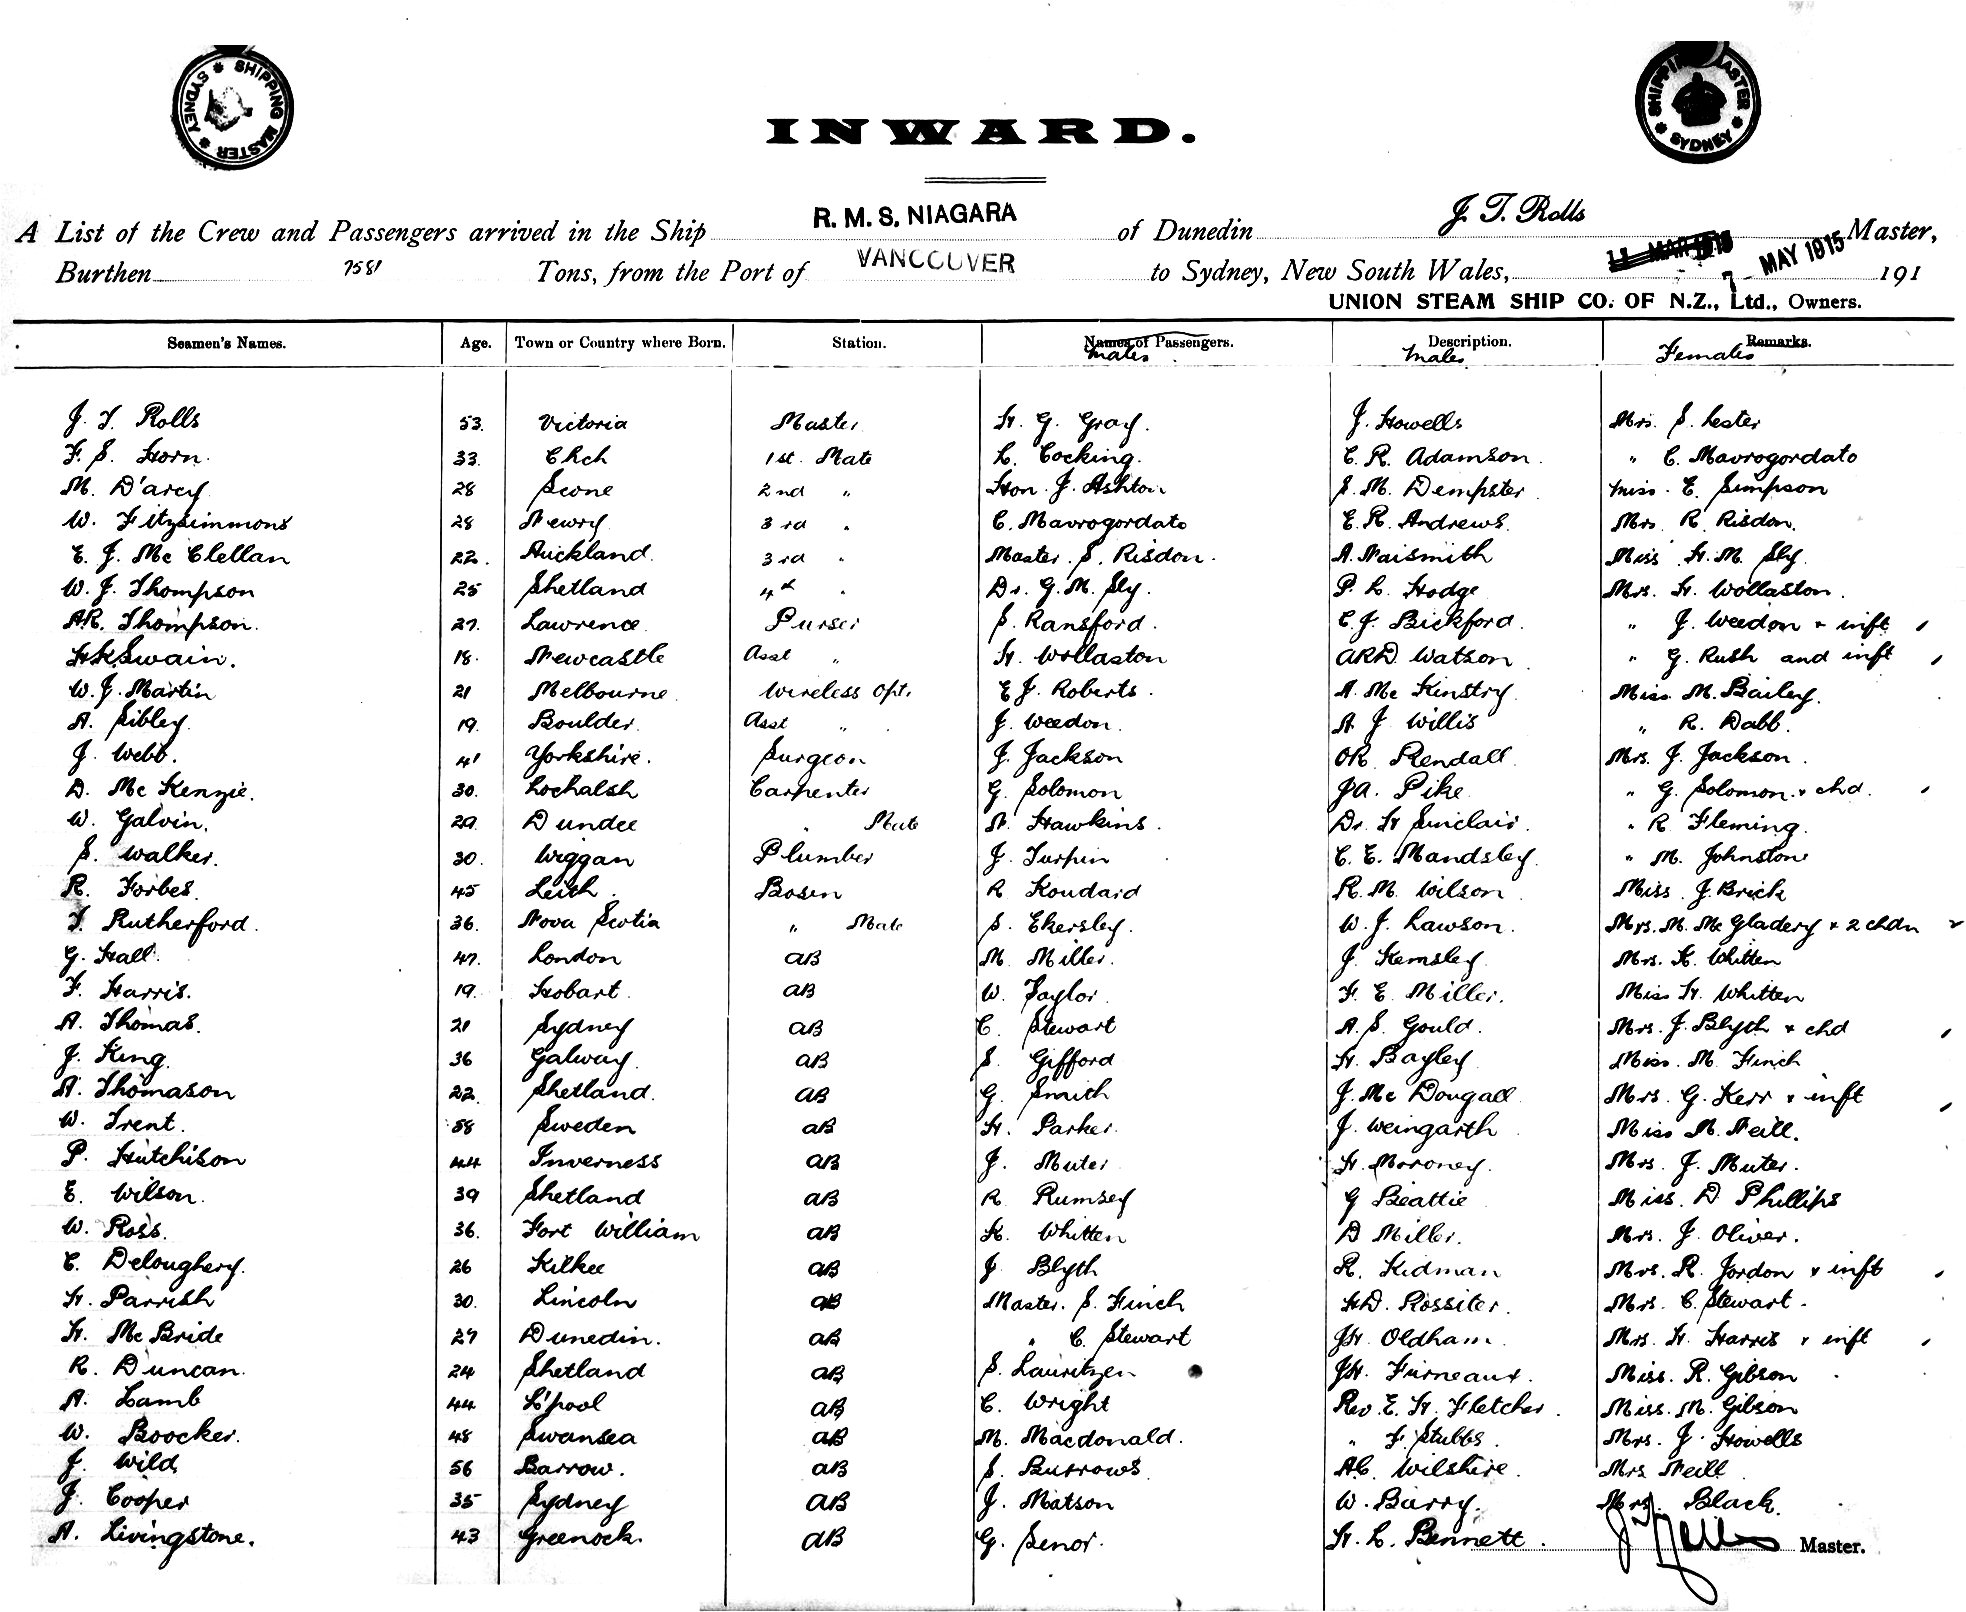 SHIPPING MASTER * SYDNEY *
SHIPPING MASTER * SYDNEY *
INWARD.
A List of the Crew and Passengers arrived in the Ship R. M. S. NIAGARA of Dunedin J. T. Rolls Master,
Burthen 7581 Tons, from the Port of VANCOUVER to Sydney, New South Wales, 7 MAY 1915 191
UNION STEAM SHIP CO. OF N.Z., Ltd., Owners.
Seamen's Names. Age. Town or Country where Born. Station. Names of Passengers. Description. Remarks.
Males Males Females
J. T. Rolls 53. Victoria Master H. G. Gray. J. Howells Mrs. S. Lester
F. S. Horn. 33. Chch 1st. Mate L. Cocking. C. R. Adamson. " C. Mavrogordato
M. D'arcy 28 Scone 2nd " Hon. J. Ashton S. M. Dempster. Miss. E. Simpson
W. Fitzsimmons 28 Newry 3rd " C. Mavrogordato E. R. Andrews. Mrs. R. Risdon.
E. J. Mc Clellan 22. Auckland. 3rd " Master. S. Risdon. A. Naismith Miss H. M. Sly
W. J. Thompson 25 Shetland 4th " Dr. G. M. Sly. P. L. Hodge Mrs. H. Wollaston.
A.R. Thompson. 27. Lawrence Purser S. Ransford. C. J. Bickford. " J. Weedon & inft
HK Swain. 18. Newcastle Asst " H. Wollaston ARD. Watson " G. Rush and inft
W. J. Martin 21 Melbourne Wireless Opt. E J. Roberts. A. Mc Kinstry. Miss M. Bailey.
A. Sibley 19. Boulder. Asst " J. Weedon. A J Willis " R. Dabb.
J. Webb. 41 Yorkshire. Surgeon J. Jackson OR. Rendall Mrs. J. Jackson.
D. Mc Kenzie. 30. Lochalsh Carpenter G. Solomon JA. Pike " G. Solomon & chd.
W. Galvin. 29. Dundee " Mate A. Hawkins. Dr. H Sinclair. " R Fleming.
S. Walker. 30. Wiggan Plumber J. Turpin C. E. Mandsley. " M. Johnstone
R. Forbes. 45 Leith. Bosen R Koudard R. M. Wilson Miss J. Brick
T. Rutherford. 36. Nova Scotia " Mate S. Ekersley. W. J. Lawson. Mrs. M. Mc Gladery & 2 chdn
G. Hall. 47. London AB M. Miller. J. Kemsley Mrs. K. Whitten
F. Harris. 19. Hobart. AB W. Taylor. F. E. Miller. Miss H. Whitten
A. Thomas. 21 Sydney AB C. Stewart A. S. Gould. Mrs. J. Blyth & chd
J. King. 36 Galway. AB S. Gifford H. Bayley Miss. M. Finch
A. Thomason 22. Shetland. AB G. Smith J. Mc Dougall Mrs. G. Kerr & inft
W. Trent. 58 Sweden AB H. Parker. J. Weingarth Miss M. Neill.
P. Hutchison 44 Inverness AB J. Muter H. Moroney. Mrs. J. Muter.
E. Wilson. 39 Shetland AB R Rumsey G Beattie Miss. D Phillips
W. Ross. 36. Fort William AB K. Whitten D Miller. Mrs. J. Oliver.
C. Deloughery. 26 Kilkee AB J Blyth R. Kidman Mrs. R. Jordon & inft
H. Parrish 30. Lincoln AB Master. S. Finch HD. Rossiter. Mrs. C. Stewart.
H. Mc Bride 27 Dunedin. AB " C. Stewart JH. Oldham. Mrs. H. Harris & inft
R. Duncan. 24 Shetland AB S. Lauritzen JH. Furneaux. Miss. R. Gibson
A. Lamb 44 L'pool AB C. Wright Rev. E. H. Fletcher. Miss. M. Gibson
W. Boocker. 48 Swansea AB M. Macdonald. " F. Stubbs. Mrs. J. Howells
J. Wild 56 Barrow. AB S. Burrows. AC. Wilshire. Mrs Neill
J. Cooper 35 Sydney AB J. Matson W. Barry. Mrs. Black.
A. Livingstone. 43 Greenock. AB G. Senor. H. L. Bennett. Master.